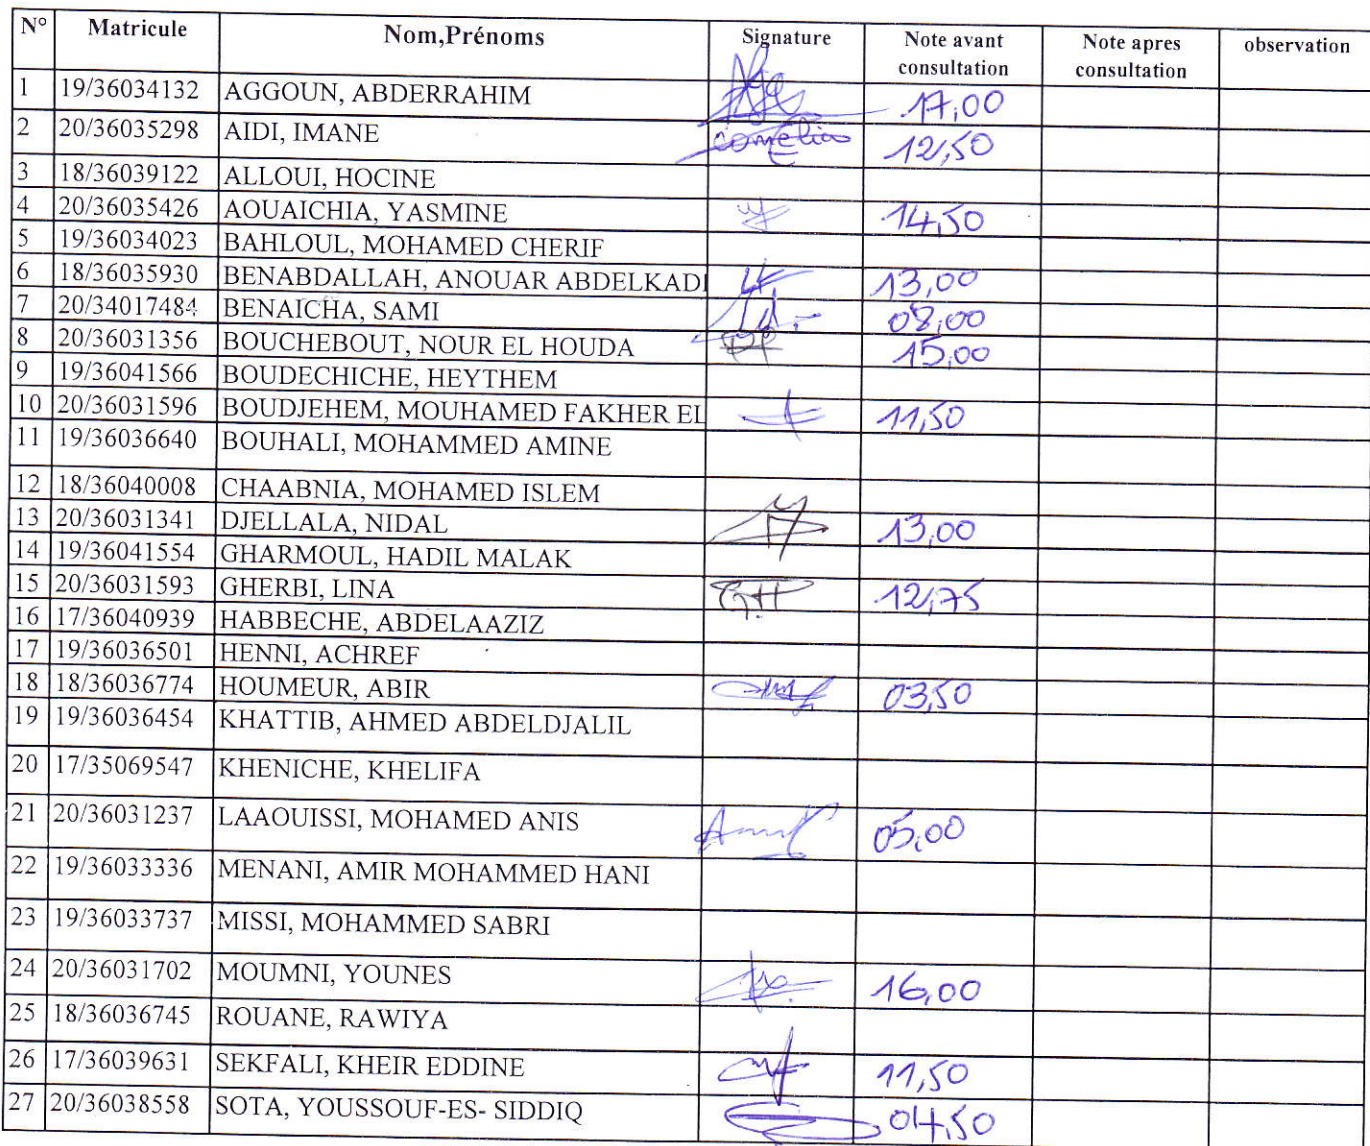 N° Matricule Nom,Prénoms Signature Note avant consultation Note apres consultation observation
1 19/36034132 AGGOUN, ABDERRAHIM 17,00
2 20/36035298 AIDI, IMANE 12,50
3 18/36039122 ALLOUI, HOCINE
4 20/36035426 AOUAICHIA, YASMINE 14,50
5 19/36034023 BAHLOUL, MOHAMED CHERIF
6 18/36035930 BENABDALLAH, ANOUAR ABDELKADI 13,00
7 20/34017484 BENAICHA, SAMI 08,00
8 20/36031356 BOUCHEBOUT, NOUR EL HOUDA 15,00
9 19/36041566 BOUDECHICHE, HEYTHEM
10 20/36031596 BOUDJEHEM, MOUHAMED FAKHER EL 11,50
11 19/36036640 BOUHALI, MOHAMMED AMINE
12 18/36040008 CHAABNIA, MOHAMED ISLEM
13 20/36031341 DJELLALA, NIDAL 13,00
14 19/36041554 GHARMOUL, HADIL MALAK
15 20/36031593 GHERBI, LINA 12,75
16 17/36040939 HABBECHE, ABDELAAZIZ
17 19/36036501 HENNI, ACHREF
18 18/36036774 HOUMEUR, ABIR 03,50
19 19/36036454 KHATTIB, AHMED ABDELDJALIL
20 17/35069547 KHENICHE, KHELIFA
21 20/36031237 LAAOUISSI, MOHAMED ANIS 05,00
22 19/36033336 MENANI, AMIR MOHAMMED HANI
23 19/36033737 MISSI, MOHAMMED SABRI
24 20/36031702 MOUMNI, YOUNES 16,00
25 18/36036745 ROUANE, RAWIYA
26 17/36039631 SEKFALI, KHEIR EDDINE 11,50
27 20/36038558 SOTA, YOUSSOUF-ES- SIDDIQ 04,50